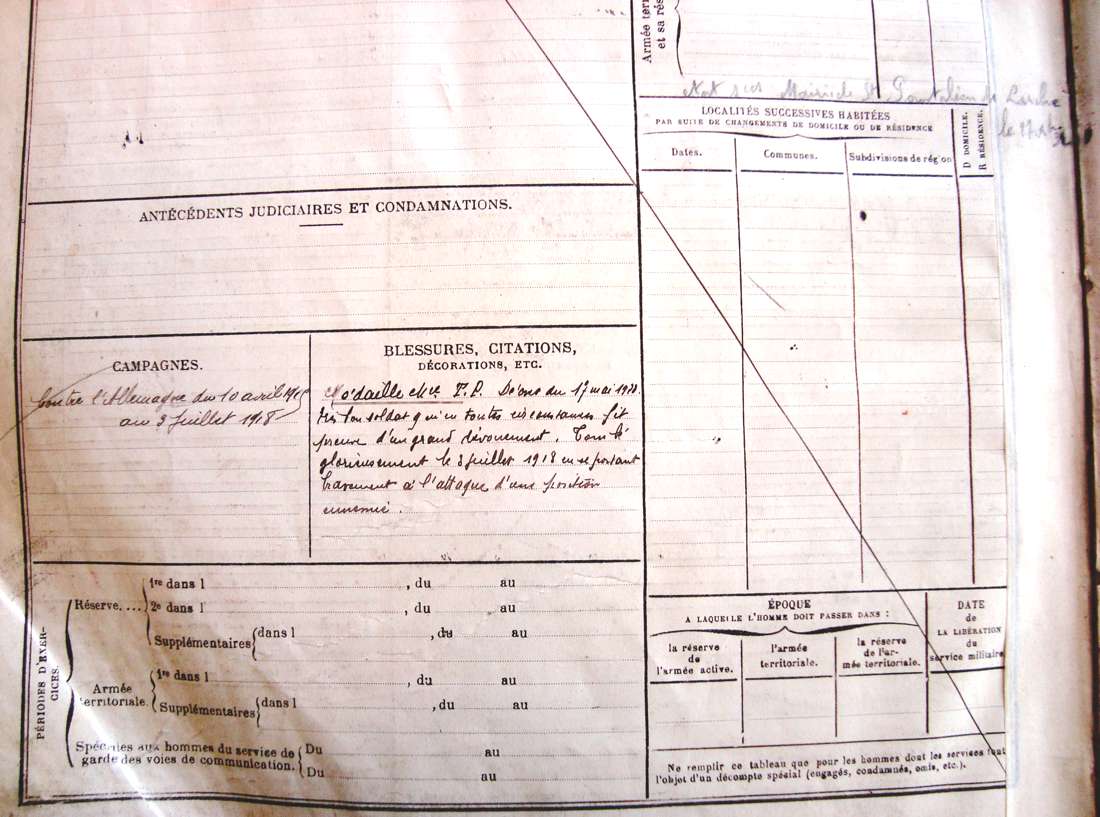 Armée terr
et sa rés
Mairie de St Pantaléon de Larche
le
ANTÉCÉDENTS JUDICIAIRES ET CONDAMNATIONS.
CAMPAGNES.
Contre l'Allemagne du 10 avril
au 3 Juillet 1918
BLESSURES, CITATIONS,
DÉCORATIONS, ETC.
du 17 mai
très bon soldat qui en toutes circonstances fit
preuve d'un grand dévouement. Tombé
glorieusement le 3 Juillet 1918 en se portant
bravement à l'attaque d'une position
ennemie.
PÉRIODES D'EXER-
CICES.
Réserve....
1re dans l , du au
2e dans l , du au
Supplémentaires dans l , du au
Armée
territoriale.
1re dans l , du au
Supplémentaires dans l , du au
Spéciales aux hommes du service de
garde des voies de communication.
Du au
Du au
LOCALITÉS SUCCESSIVES HABITÉES
PAR SUITE DE CHANGEMENTS DE DOMICILE OU DE RÉSIDENCE
Dates.
Communes.
Subdivisions de région
D DOMICILE.
R RÉSIDENCE.
ÉPOQUE
A LAQUELLE L'HOMME DOIT PASSER DANS :
la réserve
de
l'armée active.
l'armée
territoriale.
la réserve
de l'ar-
mée territoriale.
DATE
de
LA LIBÉRATION
du
service militaire
Ne remplir ce tableau que pour les hommes dont les services font
l'objet d'un décompte spécial (engagés, condamnés, omis, etc.).